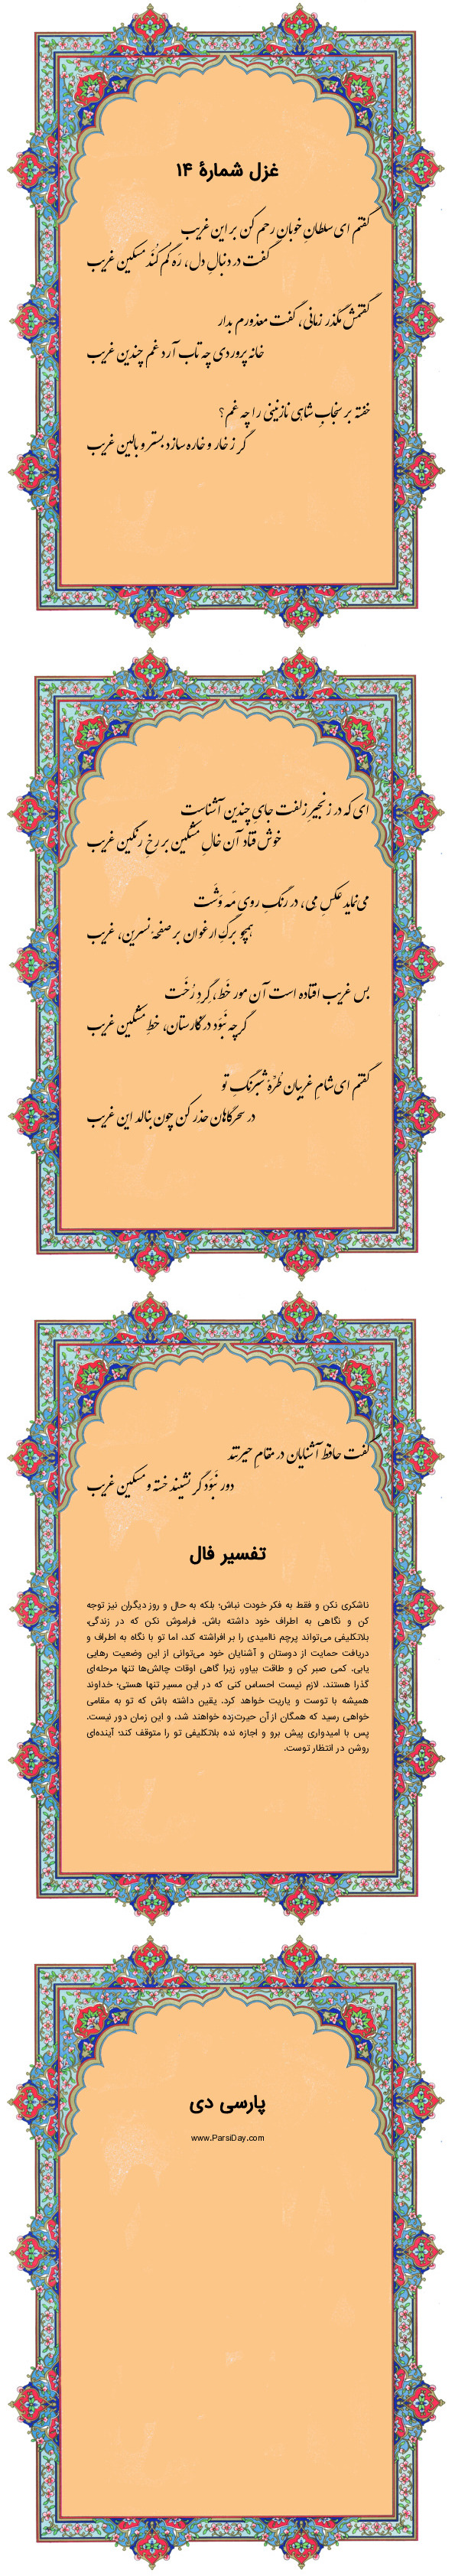 غزل شمارهٔ ۱۴
گفتم ای سلطانِ خوبان رحم کن بر این غریب
گفت در دنبالِ دل، رَه گم کُنَد مسکین غریب
گفتمش مگذر زمانی، گفت معذورم بدار
خانه پروردی چه تاب آرد غم چندین غریب
خفته بر سنجابِ شاهی نازنینی را چه غم؟
گر ز خار و خاره سازد بستر و بالین غریب
ای که در زنجیرِ زلفت جایِ چندین آشناست
خوش فتاد آن خالِ مشکین بر رخِ رنگین غریب
می‌نماید عکسِ می، در رنگِ رویِ مَه وَشَت
همچو برگِ ارغوان بر صفحهٔ نسرین، غریب
بس غریب افتاده است آن مور خَط، گِردِ رُخَت
گرچه نَبوَد در نگارستان، خطِ مشکین غریب
گفتم ای شامِ غریبان طُرّهٔ شبرنگِ تو
در سحرگاهان حذر کن چون بنالد این غریب
گفت حافظ آشنایان در مقامِ حیرتند
دور نَبوَد گر نشیند خسته و مسکین غریب
تفسیر فال
ناشکری نکن و فقط به فکر خودت نباش؛ بلکه به حال و روز دیگران نیز توجه
کن و نگاهی به اطراف خود داشته باش. فراموش نکن که در زندگی،
بلاتکلیفی می‌تواند پرچم ناامیدی را بر افراشته کند، اما تو با نگاه به اطراف و
دریافت حمایت از دوستان و آشنایان خود می‌توانی از این وضعیت رهایی
یابی. کمی صبر کن و طاقت بیاور، زیرا گاهی اوقات چالش‌ها تنها مرحله‌ای
گذرا هستند. لازم نیست احساس کنی که در این مسیر تنها هستی؛ خداوند
همیشه با توست و یاریت خواهد کرد. یقین داشته باش که تو به مقامی
خواهی رسید که همگان از آن حیرت‌زده خواهند شد، و این زمان دور نیست.
پس با امیدواری پیش برو و اجازه نده بلاتکلیفی تو را متوقف کند؛ آینده‌ای
روشن در انتظار توست.
پارسی دی
www.ParsiDay.com